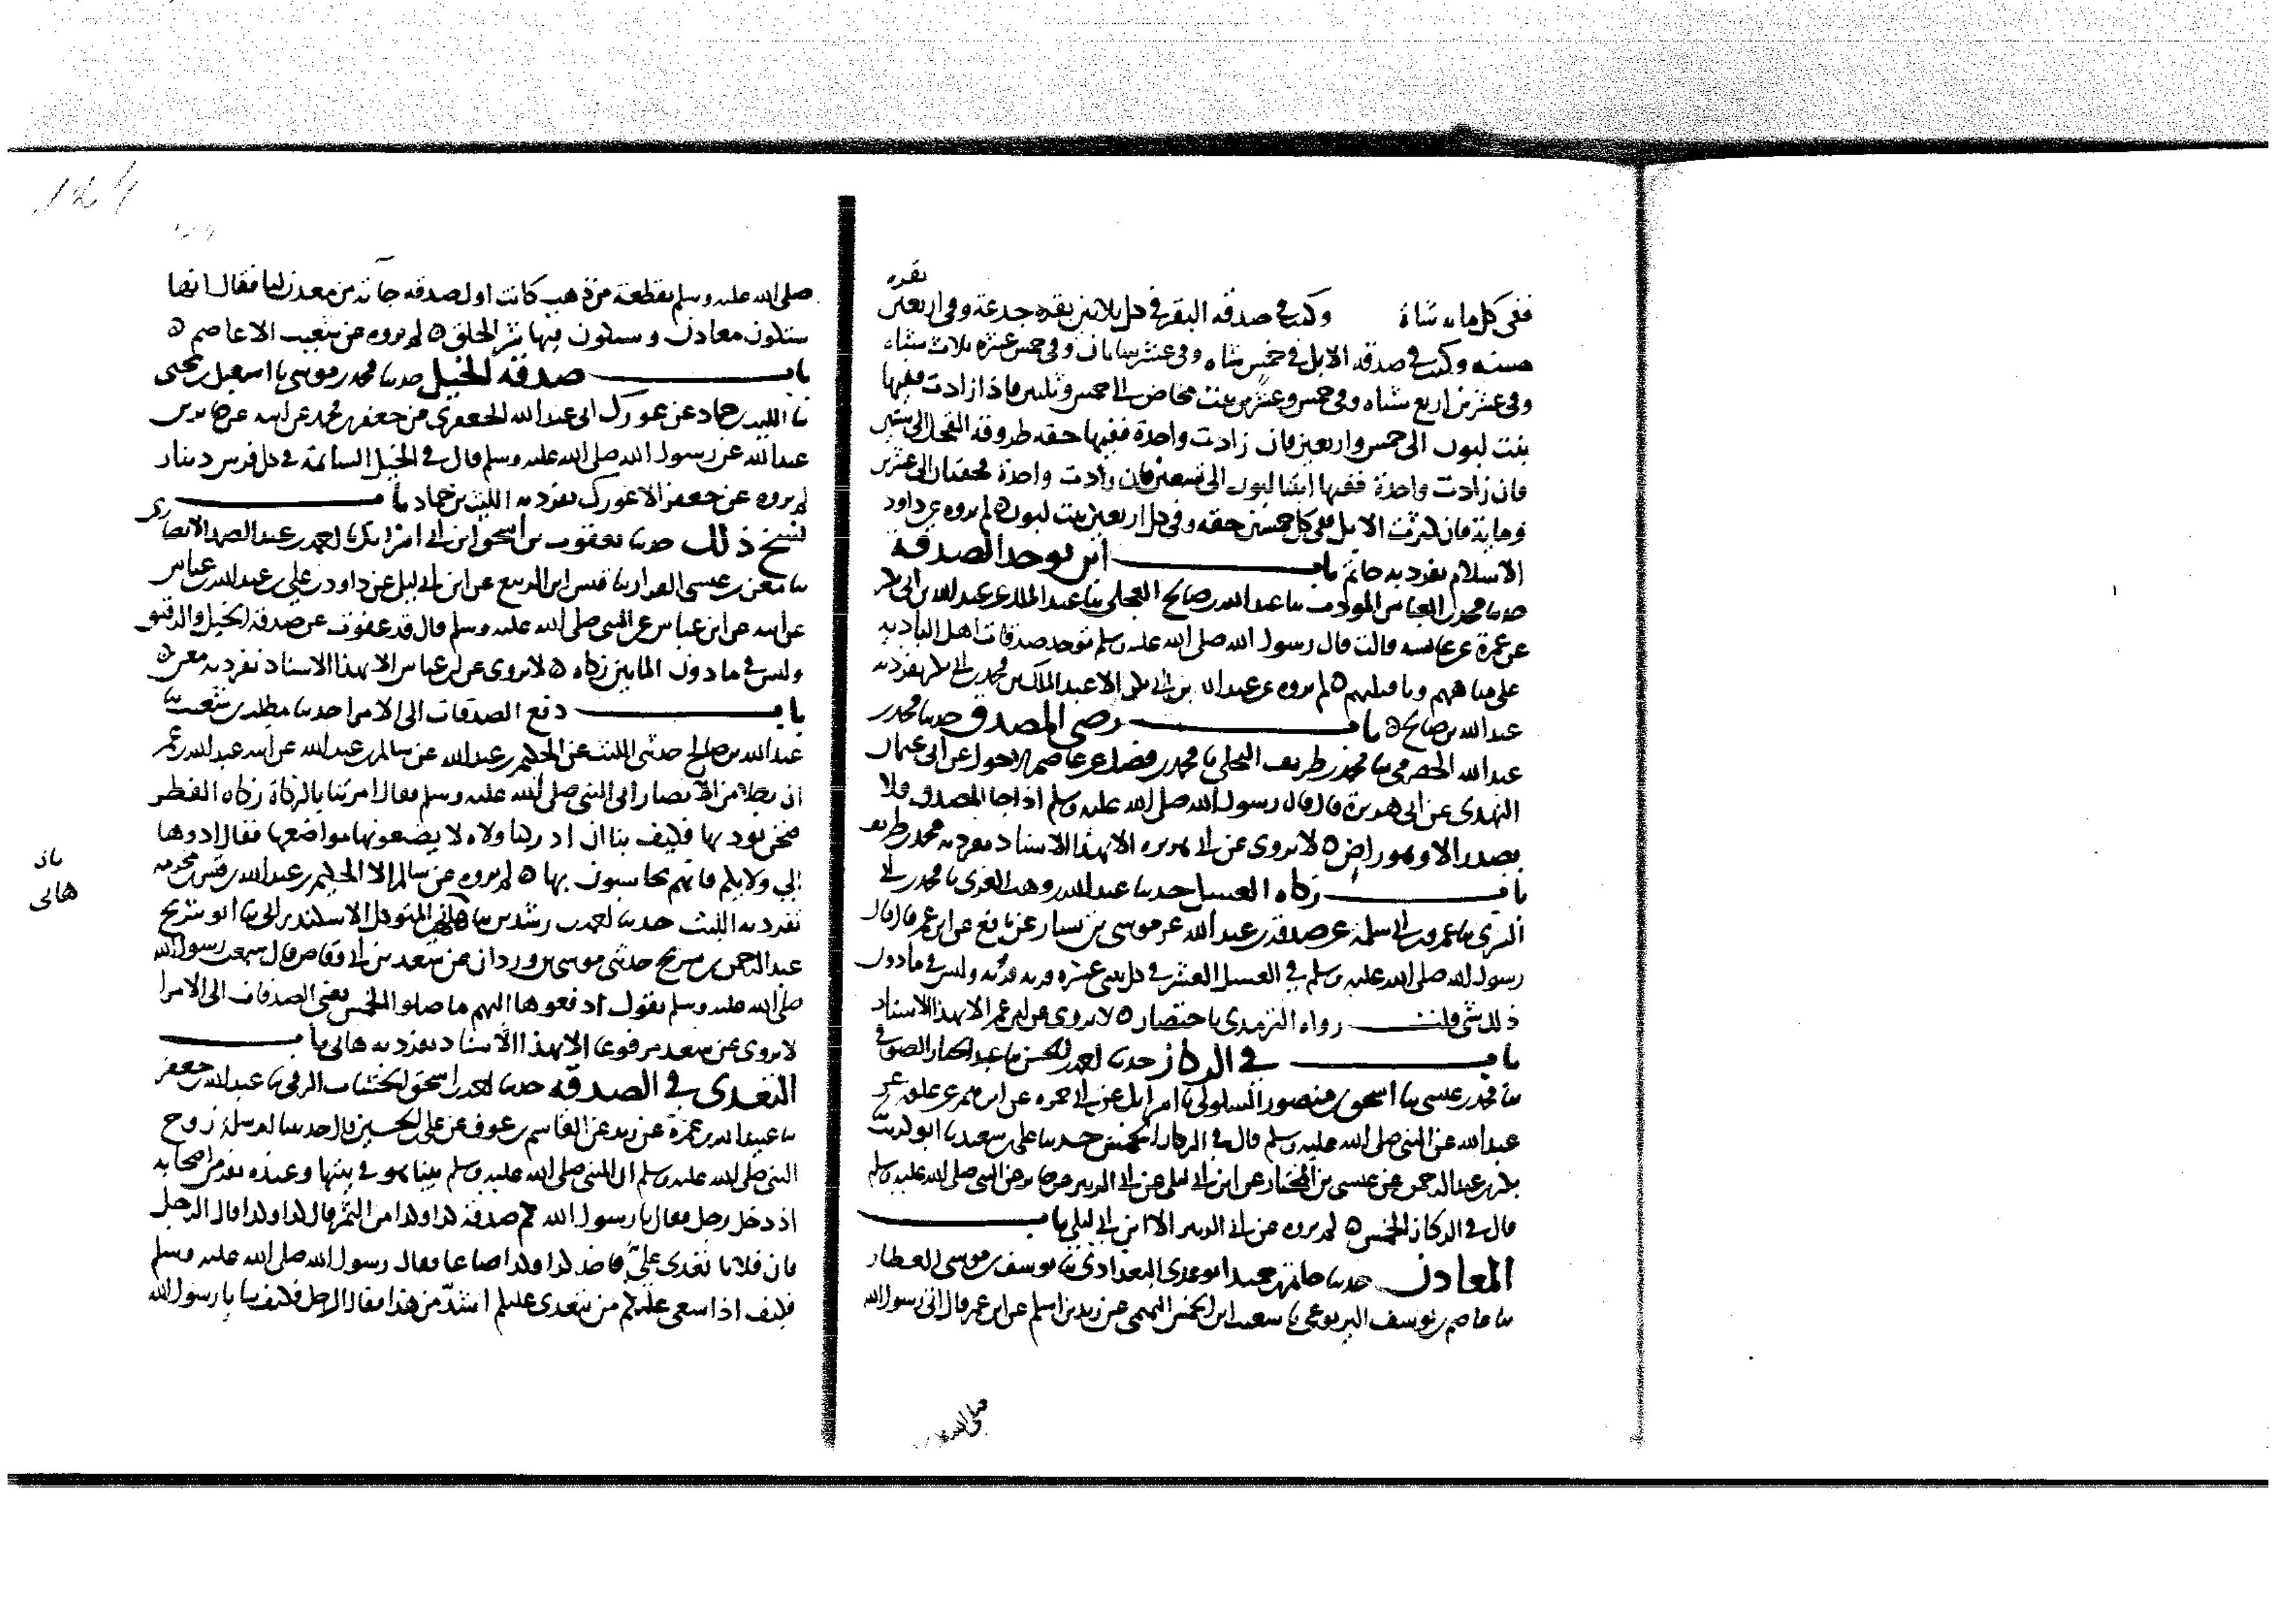 ففى كل مايه شاة وكتب في صدقه البقر في كل ثلاثين بقره جدعة وفى اربعين بقره
مسنه وكتب في صدقه الابل في خمس شاه وفى عشر شاتان وفى خمس عشره ثلاث شاه
وفى عشرين اربع شاه وفى خمس وعشرين بنت مخاض الى خمس وثلثين فاذا زادت ففيها
بنت لبون الى خمس واربعين فان زادت واحدة ففيها حقه طروقه الفحل الى ستين
فان زادت واحدة ففيها ابنتا لبون الى تسعين فان زادت واحدة فحقتان الى عشرين
ومايه فان كثرت الابل ففى كل خمسين حقه وفى كل اربعين بنت لبون ه لم يروه عن داود
الاسلام تفرد به حاتم باب اين توخذ الصدقة
حدثنا محمد بن العباس المودب ثنا عبد الله بن صالح العجلى ثنا عبد الملك عن عبد الله بن ابى بكر
عن عمرة عن عايشه قالت قال رسول الله صلى الله عليه وسلم توخذ صدقات اهل الباديه
على مياههم وبافنيتهم ه لم يروه عن عبد الله بن ابى بكر الا عبد الملك بن محمد بن ابى بكر تفرد به
عبد الله بن صالح ه باب رضى المصدق حدثنا محمد بن
عبد الله الحضرمى ثنا محمد بن طريف البجلى ثنا محمد بن فضيل عن عاصم الاحول عن ابى عثمان
النهدى عن ابى هريرة قال قال رسول الله صلى الله عليه وسلم اذا جا المصدق فلا
يصدر الا وهو راض ه لا يروى عن ابى هريره الا بهذا الاسناد تفرد به محمد بن طريف
باب زكاه العسل حدثنا عبد الله بن وهب الغزى ثنا محمد بن ابى
السرى ثنا عمرو بن ابى سلمة عن صدقه بن عبد الله عن موسى بن يسار عن نافع عن ابن عمر قال قال
رسول الله صلى الله عليه وسلم في العسل العشر في كل ثنتى عشره قربه قربه وليس في ما دون
ذلك شى قلت رواه الترمذى باختصار ه لا يروى عن ابن عمر الا بهذا الاسناد
باب في الركاز حدثنا احمد بن الحسن بن عبد الجبار الصوفى
ثنا محمد بن عيسى ثنا اسحق بن منصور السلولى ثنا اسرايل عن ابى حمزه عن ابرهيم عن علقمه عن
عبد الله عن النبى صلى الله عليه وسلم قال في الركاز الخمس حدثنا على بن سعيد ثنا ابو كريب
بكر بن عبد الرحمن عن عيسى بن المختار عن ابن ابى ليلى عن ابى الزبير عن جابر عن النبى صلى الله عليه وسلم
قال في الركاز الخمس ه لم يروه عن ابى الزبير الا ابن ابى ليلى باب
المعادن حدثنا حاتم بن حميد ابو عدى البغدادى ثنا يوسف بن موسى القطان
ثنا عاصم بن يوسف اليربوعى ثنا سعير ابن الخمس التميمى عن زيد بن اسلم عن ابن عمر قال اتى رسول الله
صلى الله عليه وسلم بقطعة من ذهب كانت اول صدقه جأته من معدن لنا فقال انها
ستكون معادن وسيكون فيها شر الخلق ه لم يروه عن شعيب الا عاصم ه
باب صدقة الخيل حدثنا محمد بن موسى ثنا اسمعيل بن يحيى
ثنا الليث بن حماد عن غورك ابى عبد الله الجعفرى عن جعفر بن محمد عن ابيه عن جابر بن
عبد الله عن رسول الله صلى الله عليه وسلم قال في الخيل السائمة في كل فرس دينار
لم يروه عن جعفر الا غورك تفرد به الليث بن حماد باب
نسخ ذلك حدثنا يعقوب بن اسحق ابن ابى اسرايل ثنا احمد بن عبد الصمد الانصارى
ثنا معن بن عيسى القزاز ثنا قيس ابن الربيع عن ابن ابى ليلى عن داود بن على بن عبد الله بن عباس
عن ابيه عن ابن عباس عن النبى صلى الله عليه وسلم قال قد عفوت عن صدقة الخيل والرقيق
وليس في ما دون المايتين زكاه ه لا يروى عن ابن عباس الا بهذا الاسناد تفرد به معن ه
باب دفع الصدقات الى الامرا حدثنا مطلب بن شعيب ثنا
عبد الله بن صالح حدثنى الليث عن الحكيم بن عبد الله عن سالم بن عبد الله عن ابيه عبد الله بن عمر
ان رجلا من الانصار اتى النبى صلى الله عليه وسلم فقال امرتنا بالزكاة زكاه الفطر
فنحن نوديها فكيف بنا ان ادركنا ولاه لا يضعونها مواضعها فقال ادوها
الي ولاتكم فانهم يحاسبون بها ه لم يروه عن سالم الا الحكيم بن عبد الله بن قيس بن مخرمه
تفرد به الليث حدثنا احمد بن رشدين ثنا هانى المتوكل الاسكندرانى ثنا ابو شريح
عبد الرحمن بن شريح حدثنى موسى بن وردان عن سعد بن ابى وقاص قال سمعت رسول الله
صلى الله عليه وسلم يقول ادفعوها اليهم ما صلوا الخمس يعنى الصدقات الى الامرا
لا يروى عن سعد مرفوعا الا بهذا الاسناد تفرد به هانى باب
التعدى في الصدقه حدثنا احمد بن اسحق الخشاب الرقى ثنا عبد الله بن جعفر
ثنا عبيد الله بن عمرو عن زيد عن القاسم بن عوف عن على بن الحسين قال حدثتنا ام سلمة زوج
النبى صلى الله عليه وسلم ان النبى صلى الله عليه وسلم بينا هو في بيتها وعنده نفر من اصحابه
اذ دخل رجل فقال يا رسول الله كم صدقة كذا وكذا من التمر قال كذا وكذا قال الرجل
فان فلانا تعدى علىّ فاخذ كذا وكذا صاعا فقال رسول الله صلى الله عليه وسلم
فكيف اذا سعى عليكم من يتعدى عليكم اشدّ من هذا فقال الرجل فكيف بنا يا رسول الله
بان
هانى